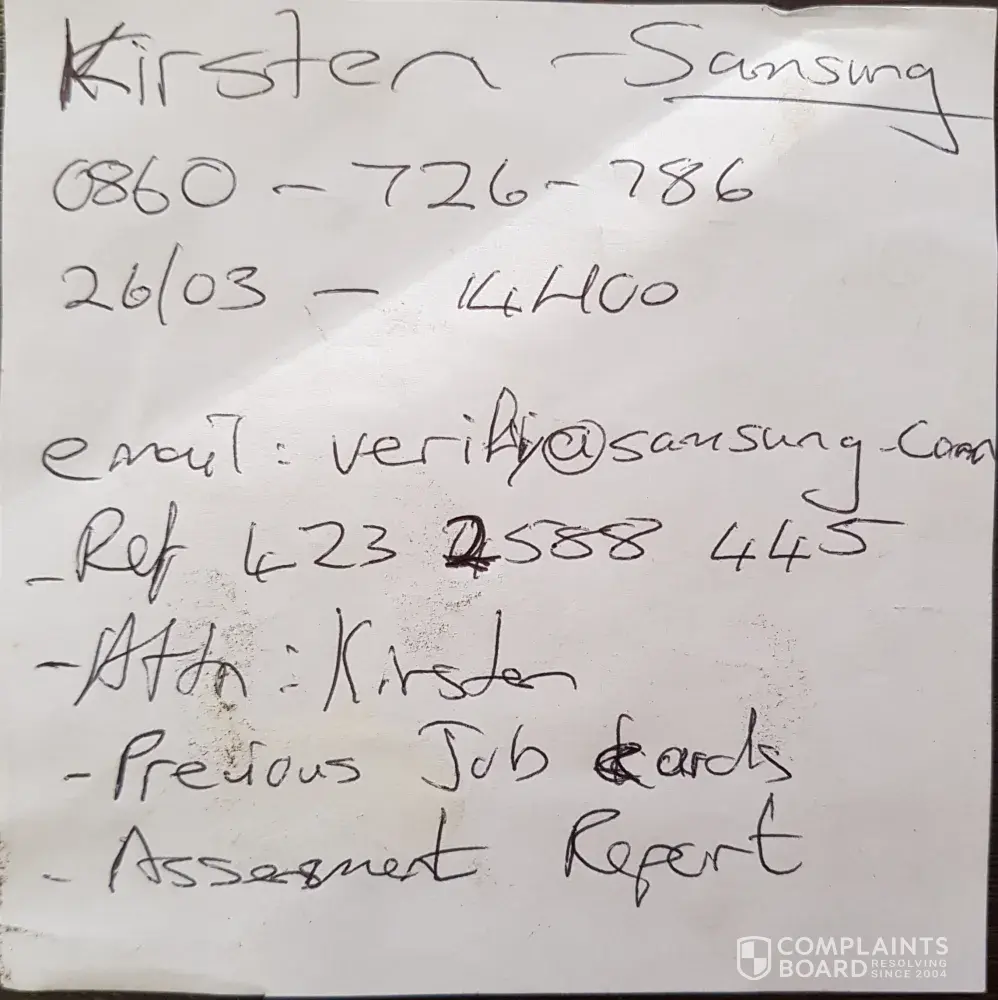 Kirsten - Samsung
0860 - 726 - 786
26/03 - 14H00
email: verify@samsung.com
- Ref 423 2588 445
- Attn : Kirsten
- Previous Job Cards
- Assesment Report
COMPLAINTS
BOARD RESOLVING
SINCE 2004